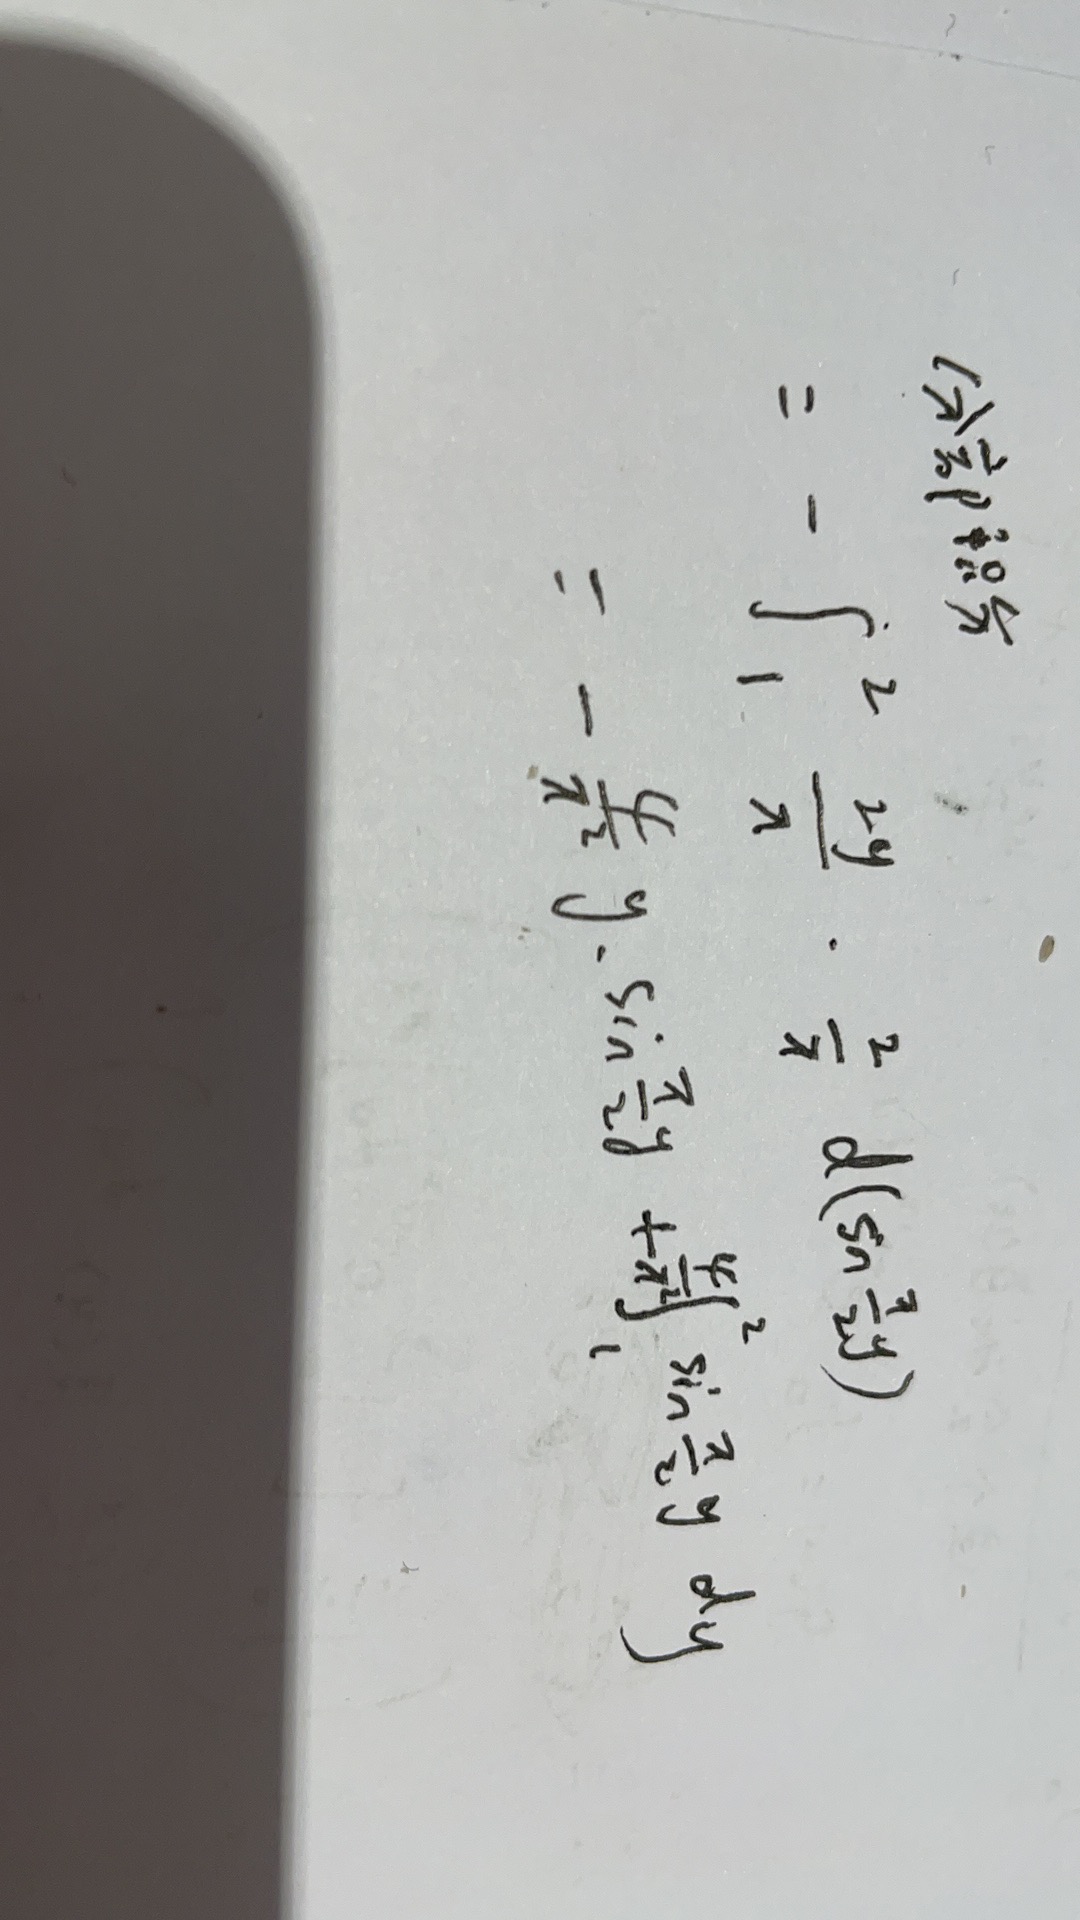 (分部积分
= - ∫₁² 2y/π · 2/π d(sin π/2 y)
= - 4/π² y · sin π/2 y + 4/π² ∫₁² sin π/2 y dy